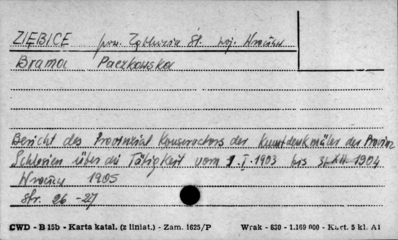 ZIĘBICE pow. Ząbkowice Śl. woj. Wrocław
Brama Paczkowska
Bericht des Provinzial Konservators der Kunstdenkmäler der Provinz
Schlesien über die Tätigkeit vom 1.I.1903 bis 31.XII.1904
Wrocław 1905
Str. 26-27
CWD - B 15b - Karta katal. (z liniat.) - Zam. 1625/P Wrak - 830 - 1.169 000 - Kart. 5 kl. A1